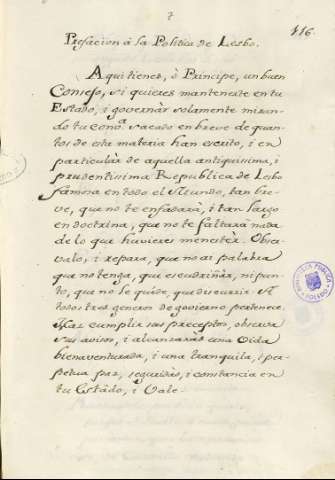 7
416.
Prefacion â la Politica de Lesbo.
Aqui tienes, ò Principe, un buen
Consejo, si quieres mantenerte en tu
Estado, i governàr solamente miran-
do tu cons.ª sacado en breve de quan-
tos de esta materia han escrito, i en
particulàr de aquella antiquissima, i
prudentissima Republica de Lesbo
famosa en todo el Mundo, tan bre-
ve, que no te enfadarà, i tan largo
en doctrina, que no te faltarà nada
de lo que huvieres menestèr. Obser-
valo, i repara, que no ai palabra
que no tenga, que escudriñàr, ni pun-
to, que no le quede, que discurrir. A
todos tres generos de govierno pertenece.
Haz cumplir sus preceptos, observa
sus avisos, i alcanzaràs una Vida
bienaventurada, i una tranquila, i per-
petua paz, seguridàd, i constancia en
tu Estàdo, i Vale.
BIBLIOTECA PUBLICA
TOLEDO